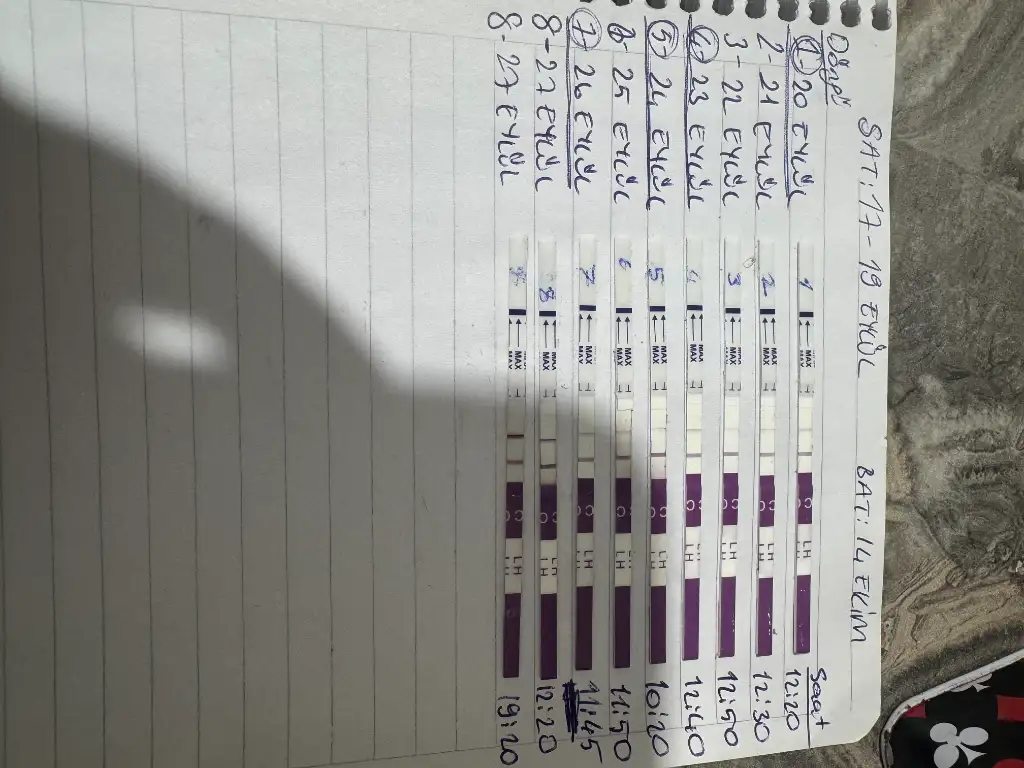 SAT: 17-19 EYLÜL BAT: 14 EKİM
Döngü Saat
1 20 EYLÜL 1 MAX LH 12:20
2- 21 EYLÜL 2 MAX LH 12:30
3- 22 EYLÜL 3 MAX LH 12:50
4 23 EYLÜL 4 MAX LH 12:40
5 24 EYLÜL 5 MAX LH 10:20
6- 25 EYLÜL 6 MAX LH 11:50
7 26 EYLÜL 7 MAX LH 11:45
8- 27 EYLÜL 8 MAX LH 12:20
8- 27 EYLÜL MAX LH 19:20